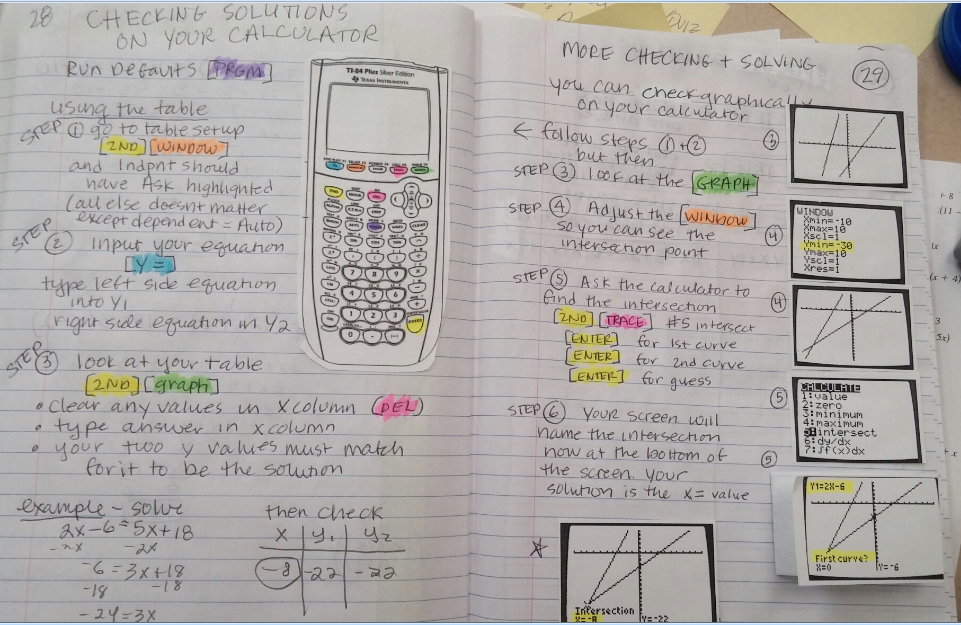 28 CHECKING SOLUTIONS
ON YOUR CALCULATOR
Run Defaults [PRGM]
using the table
STEP ① go to table setup
[2ND] [WINDOW]
and Indpnt should
have Ask highlighted
(all else doesnt matter
except dependent = Auto)
STEP ② input your equation
[Y=]
type left side equation
into Y1
right side equation in Y2
STEP ③ look at your table
[2ND] [graph]
• Clear any values in X column (DEL)
• type answer in x column
• your two y values must match
for it to be the solution
example - solve
2x-6=5x+18
-2x -2x
-6=3x+18
-18 -18
-24=3x
then check
X Y1 Y2
-8 -22 -22
TI-84 Plus Silver Edition
TEXAS INSTRUMENTS
7 8 9
4 5 6
1 2 3
0 . (-)
ENTER
Quiz
MORE CHECKING + SOLVING
29
you can check graphically
on your calculator
← follow steps ①+②
but then
STEP ③ look at the [GRAPH]
STEP ④ Adjust the [WINDOW]
so you can see the
intersection point
STEP ⑤ Ask the calculator to
find the intersection
[2ND] [TRACE] #5 intersect
[ENTER] for 1st curve
[ENTER] for 2nd curve
[ENTER] for guess
STEP ⑥ Your screen will
name the intersection
now at the bottom of
the screen. your
solution is the x= value
③
④
WINDOW
Xmin=-10
Xmax=10
Xscl=1
Ymin=-30
Ymax=10
Yscl=1
Xres=1
④
⑤
CALCULATE
1:value
2:zero
3:minimum
4:maximum
5:intersect
6:dy/dx
7:∫f(x)dx
⑤
Y1=2X-6
First curve?
X=0 Y=-6
Intersection
X=-8 Y=-22
+ 8
(11 -
(x + 4)
3
5x)